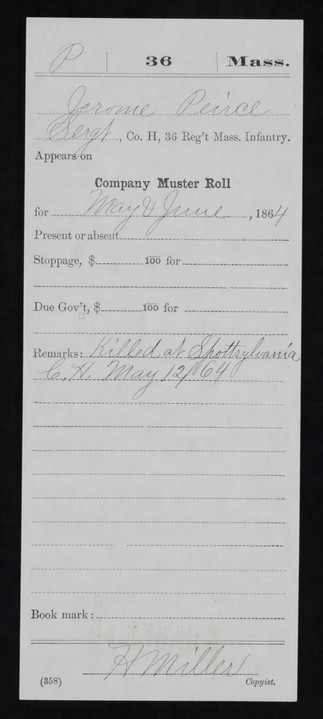 P | 36 | Mass.
Jerome Peirce
Sergt, Co. H, 36 Reg't Mass. Infantry.
Appears on
Company Muster Roll
for May & June, 1864
Present or absent
Stoppage, $ 100 for
Due Gov't, $ 100 for
Remarks: Killed at Spottsylvania
C.H. May 12/64
Book mark:
H Miller
(358) Copyist.